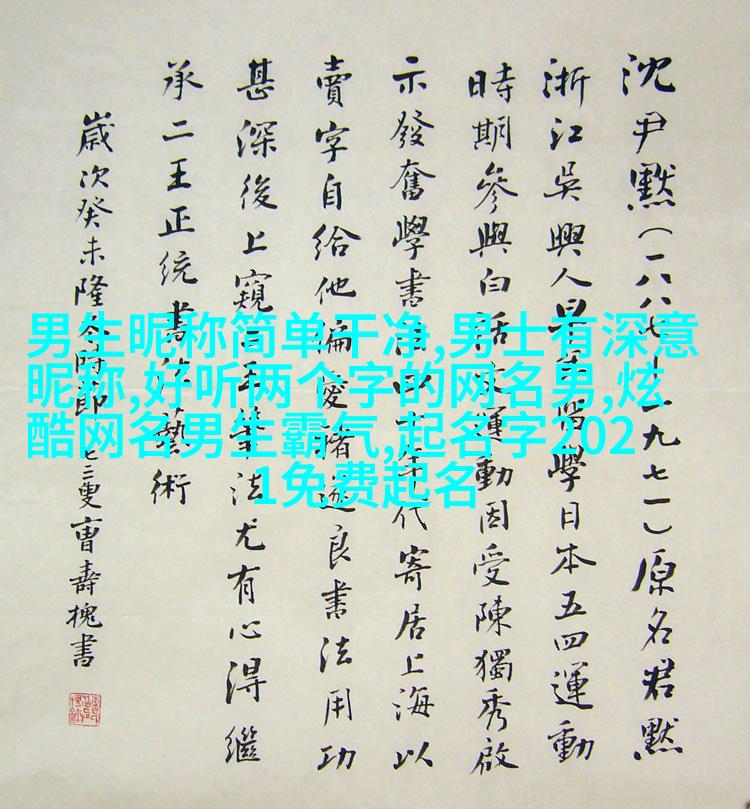 沈尹默(一八八七—一九七一)原名君默
浙江吳興人早年留學日本五四運動
時期參與白話文運動因受陳獨秀啟
示發奮學書法以十年代寄居上海以
賣字自給他偏愛褚遂良書法用功
甚深後上窺二王筆法尤有心得繼
承二王正统書法藝術
歲次癸未隆冬時節七二叟曹壽槐書
男生昵称简单干净,男士有深意
昵称,好听两个字的网名男,炫
酷网名男生霸气,起名字202
1免费起名